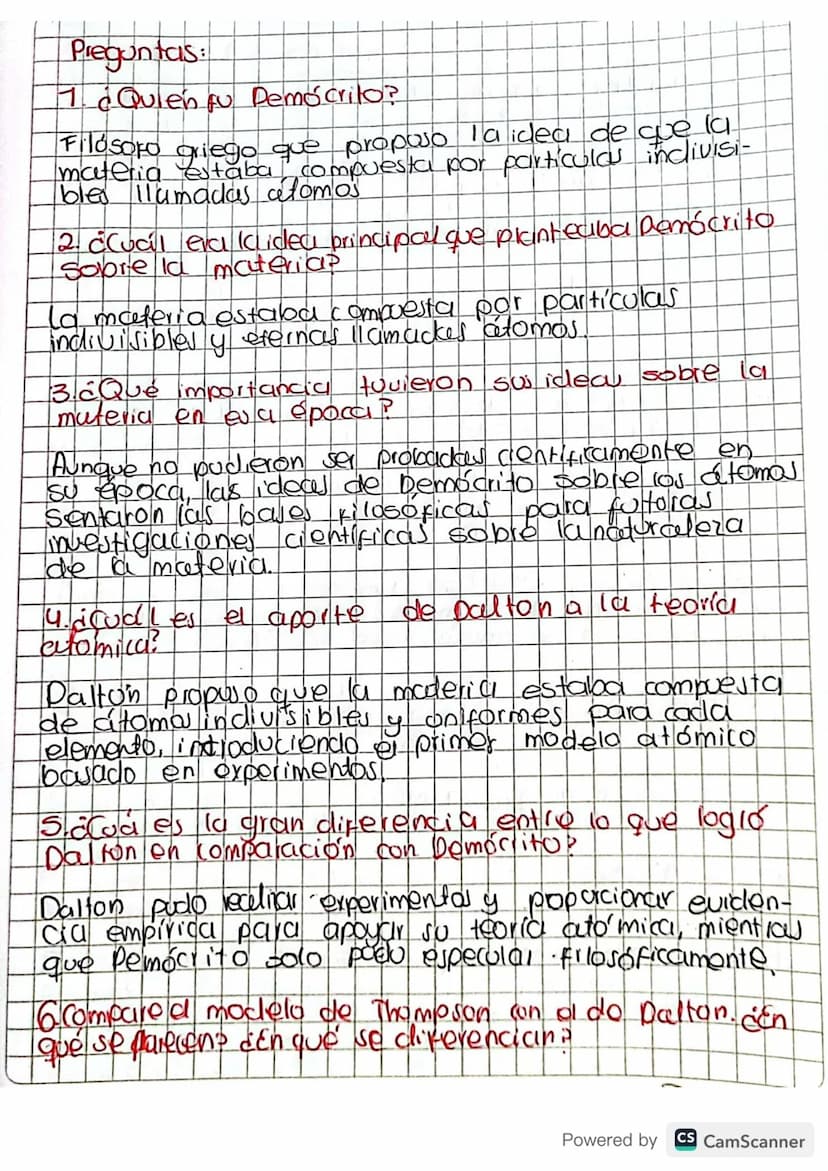 Preguntas:
1. ¿Quién fu Demócrito?
Filósofo griego que propuso la idea de que la
materia estaba compuesta por partículas indivisi-
bles llamadas átomos
2. ¿Cuál era la idea principal que planteaba Demócrito
sobre la materia?
La materia estaba compuesta por partículas
indivisibles y eternas llamadas átomos.
3. ¿Qué importancia tuvieron sus ideas sobre la
materia en esa época?
Aunque no pudieron ser probadas científicamente en
su época, las ideas de Demócrito sobre los átomos
sentaron las bases filosóficas para futuras
investigaciones científicas sobre la naturaleza
de la materia.
4. ¿Cuál es el aporte de Dalton a la teoría
atomica?
Dalton propuso que la materia estaba compuesta
de átomos indivisibles y uniformes para cada
elemento, introduciendo el primer modelo atómico
basado en experimentos.
5. ¿Cuá es la gran diferencia entre lo que logró
Dalton en comparación con Demócrito?
Dalton pudo realizar experimentos y proporcionar eviden-
cia empírica para apoyar su teoría atómica, mientras
que Demócrito solo pudo especular filosóficamente.
6. Compare el modelo de Thompson con el de Dalton. ¿En
qué se parecen? ¿En qué se diferencian?
Powered by CS CamScanner